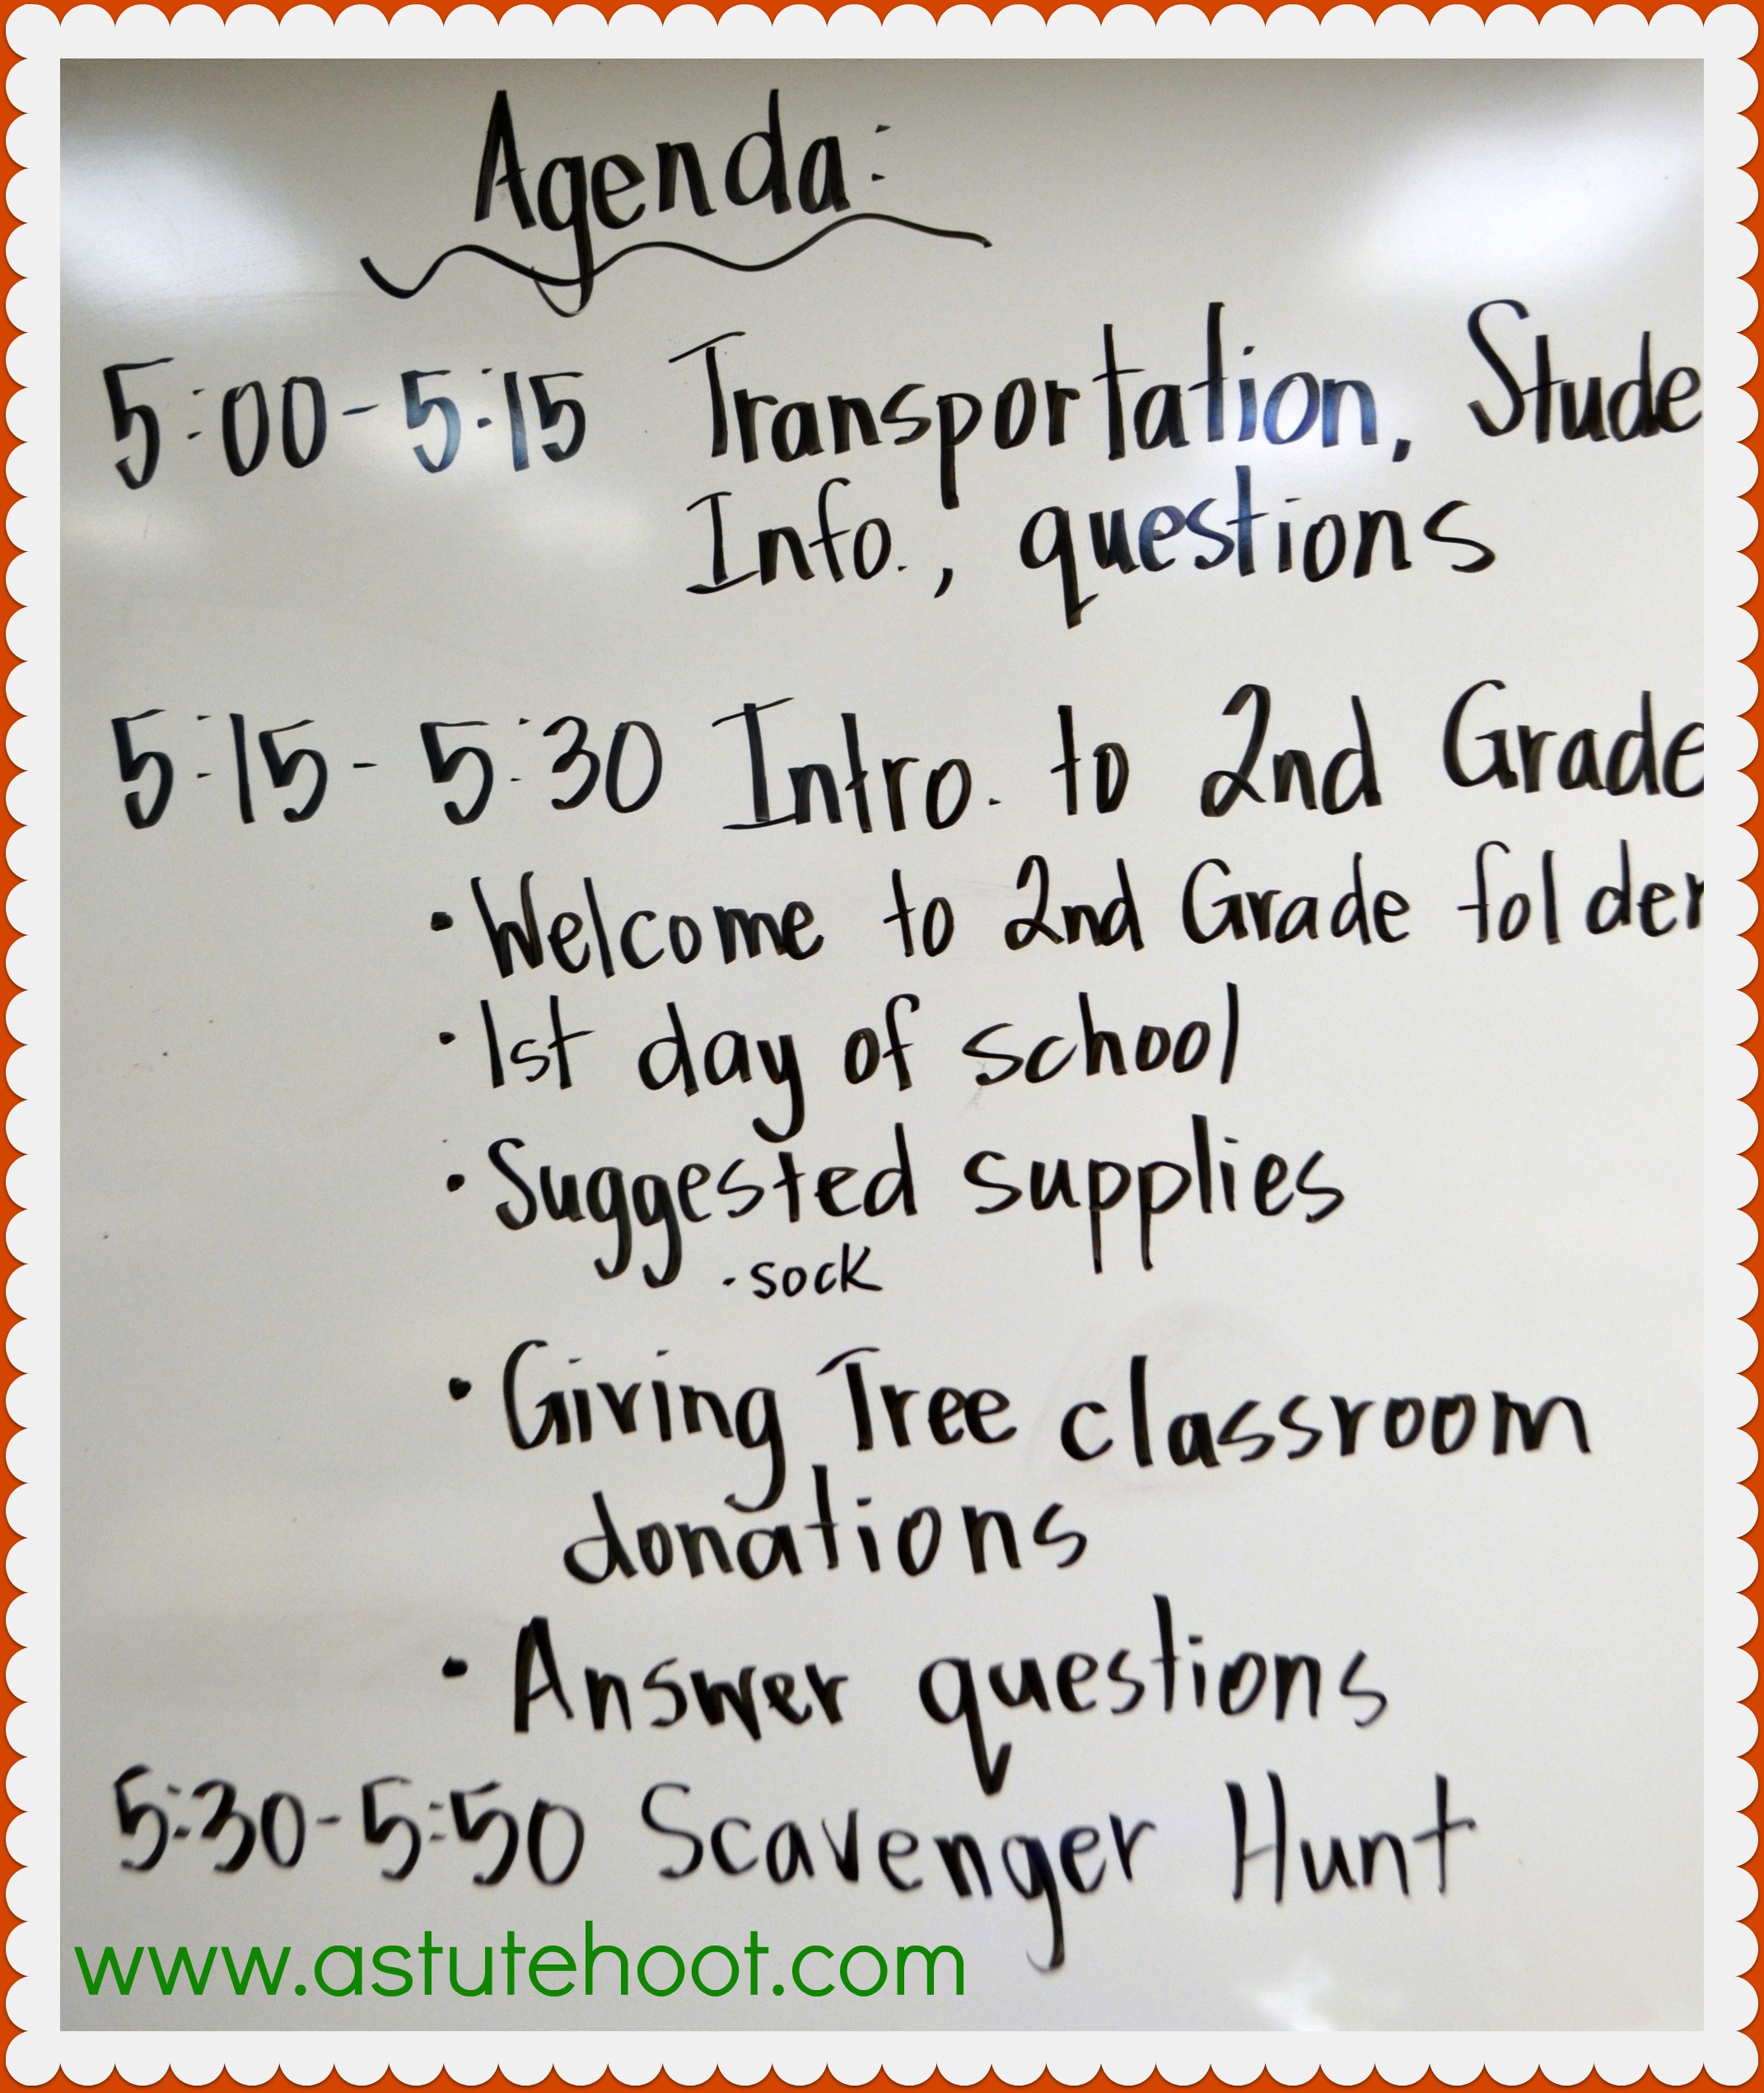 Agenda:
5:00-5:15 Transportation, Stude
Info., questions
5:15-5:30 Intro. to 2nd Grade
· Welcome to 2nd Grade folder
· 1st day of school
· Suggested supplies
- sock
· Giving Tree classroom
donations
· Answer questions
5:30-5:50 Scavenger Hunt
www.astutehoot.com